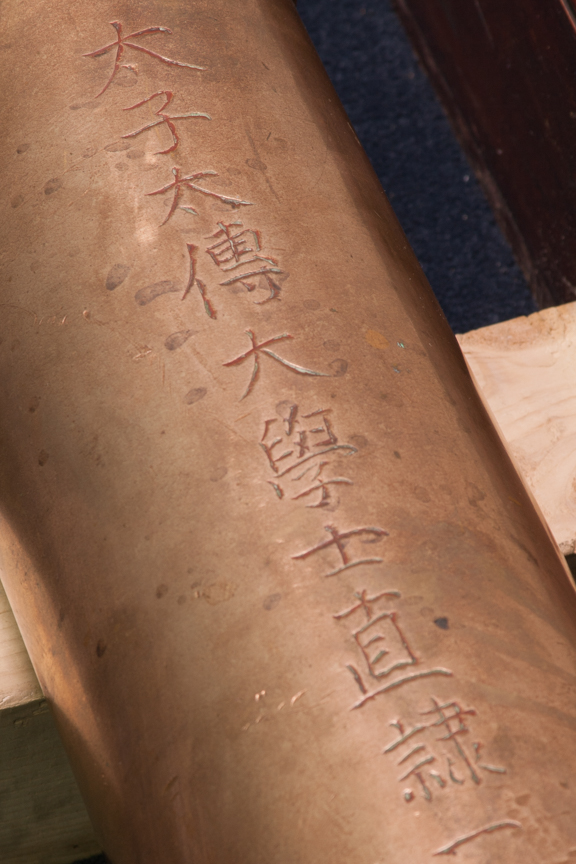 太子太傅大學士直隸